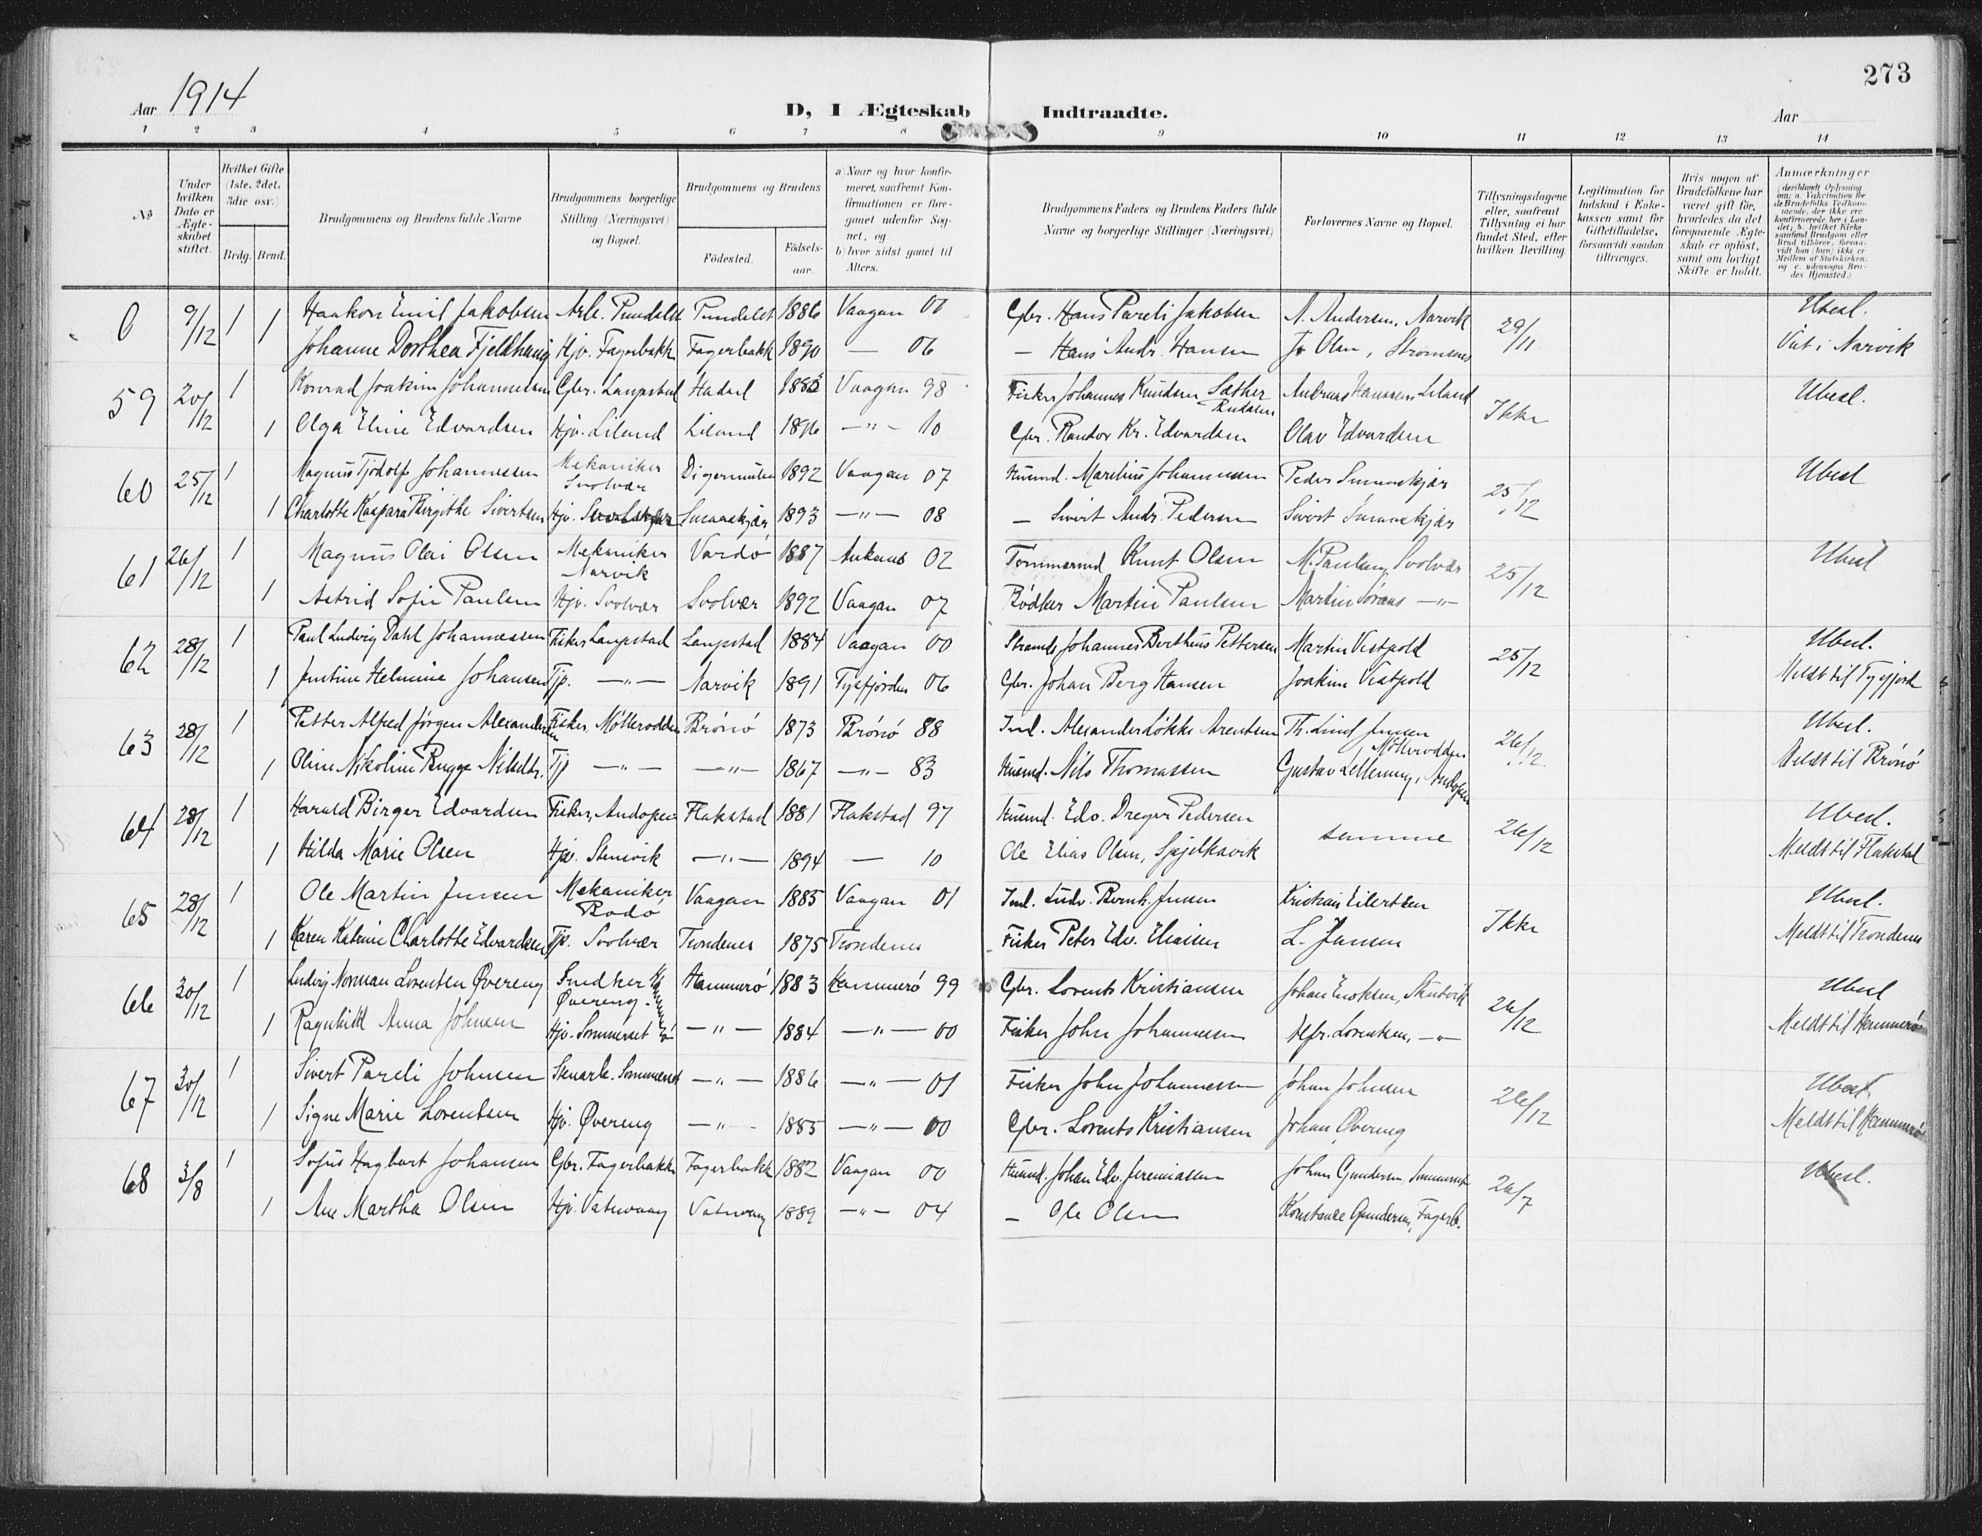 273
Aar 1914
D, I Ægteskab Indtraadte.
Aar
1 2 3 4 5 6 7 8 9 10 11 12 13 14
№
Under hvilken Dato er Ægteskabet stiftet.
Hvilket Gifte (1ste, 2det, 3die osv.)
Brdg. Brud.
Brudgommens og Brudens fulde Navne
Brudgommens borgerlige Stilling (Næringsvei) og Bopæl.
Brudgommens og Brudens
Fødested.
Fødselsaar.
a) Naar og hvor konfirmeret, saafremt Konfirmationen er foregaaet udenfor Sognet, og b) hvor sidst gaaet til Alters.
Brudgommens Faders og Brudens Faders fulde Navne og borgerlige Stillinger (Næringsvei)
Forlovernes Navne og Bopæl.
Tillysningsdagene eller, saafremt Tillysning ei har fundet Sted, efter hvilken Bevilling.
Legitimation for Indskud i Enkekassen samt for Giftetilladelse, forsaavidt saadan tiltrænges.
Hvis nogen af Brudefolkene har været gift før, hvorledes da det foregaaende Ægteskab er opløst, samt om lovligt Skifte er holdt.
Anmærkninger
0 9/12 1 Haakon Emil Jakobsen Arb. Pundslet Pundslet 1886 Vaagan 01 Gbr. Hans Pareli Jakobsen A. Andersen, Narvik 29/11 Ubesl.
1 Johanne Dorthea Fjeldhaug Hjv. Fagerbakk Fagerbakk 1890 — 06 — Hans Andr. Hansen Jo Olsen, Strømsnes Viet i Narvik
59 20/12 1 Konrad Joakim Johannessen Gbr. Laupstad Hadsel 1885 Vaagan 98 Fisker Johannes Knudsen Sæther Andreas Hanssen Liland Ikke Ubesl.
1 Olga Eline Edvardsen Hjv. Liland Liland 1896 —"— 10 Gbr. Randor Kr. Edvardsen Olav Edvardsen
60 25/12 1 Magnus Tjodolf Johannessen Mekaniker Svolvær Digermulen 1892 Vaagan 07 Husmd. Marelius Johannessen Peder Svinøskjær 25/12 Ubesl
1 Charlotte Kaspara Birgithe Sivertsen Hjv. 1893 —"— 08 — Sivert Andr. Pedersen Sivert
61 26/12 1 Magnus Olai Olsen Mekaniker Narvik Vardø 1887 Ankenes 02 Tømmermd Knut Olsen M. Paulsen, Svolvær 25/12 Ubesl
1 Astrid Sofie Paulsen Hjv. Svolvær Svolvær 1892 Vaagan 07 Bødker Martin Paulsen Martin Sørans —"—
62 28/12 1 Paul Ludvig Dahl Johannessen Fisker Laupstad Laupstad 1884 Vaagan 00 Strands. Johannes Berthius Pettersen Martin Vestpold 25/12 Ubesl.
1 Justine Helmine Johansen Tjp. —"— Narvik 1891 Tysfjorden 06 Gbr. Johan Berg Hansen Joakim Vestpold Meldt til Tysfjord
63 28/12 1 Petter Alfred Jørgen Alexandersen Fisker, Møllerodden Brønø 1873 Brønø 88 Ind. Alexander Løkke Arentsen Th. Lind Jensen Møllerodden 26/12 Ubesl.
1 Oline Nikoline Bugge Nilsdtr. Tjp —"— —"— 1867 —"— 83 Husmd. Nils Thomassen Gustav Ellevseng, Andopen Meldt til Brønø
64 28/12 1 Harald Birger Edvardsen Fisker, Andopen Flakstad 1881 Flakstad 97 Husmd. Edv. Dreyer Pedersen samme 26/12 Ubesl.
1 Hilda Marie Olsen Hjv. Stensvik —"— 1894 — 10 Ole Elias Olsen, Meldt til Flakstad
65 28/12 1 Ole Martin Jensen Mekaniker, Bodø Vaagan 1885 Vaagan 01 Ind. Ludv. Bernh. Jensen Kristian Eilertsen Ikke Ubesl.
1 Karen Katrine Charlotte Edvardsen Tjp. Svolvær Trondenes 1875 Trondenes Fisker Peter Edv. Eliasen L. Jensen Meldt til Trondenes
66 30/12 1 Ludvig Norman Lorentsen Øvereng Snedker Øvereng Hammerø Hammerø 1883 Hammerø 99 Gbr. Lorents Kristiansen Johan Enoksen, Skutvik 26/12 Ubesl
1 Ragnhild Anna Johnsen Hjv. Sommerset —"— 1884 —"— 00 Fisker John Johannessen Alfr. Lorentsen, —"— Meldt til Hammerø
67 30/12 1 Sivert Pareli Johnsen Stenarb. Sommerset —"— 1886 —"— 01 Fisker John Johannessen Johan Johnsen 26/12 Ubesl.
1 Signe Marie Lorentsen Hjv. Øvereng —"— 1885 —"— 00 Gbr. Lorents Kristiansen Johan Øvereng Meldt til Hammerø
68 3/8 1 Sofus Hagbart Johansen Gbr. Fagerbakk Fagerbakk 1882 Vaagan 00 Husmd. Johan Edv. Jeremiassen Johan Gundersen, 26/7 Ubesl.
1 Ane Martha Olsen Hjv. Vatervaag Vatervaag 1889 —"— 04 — Ole Olsen Konstanse Gundersen, Fagerb.